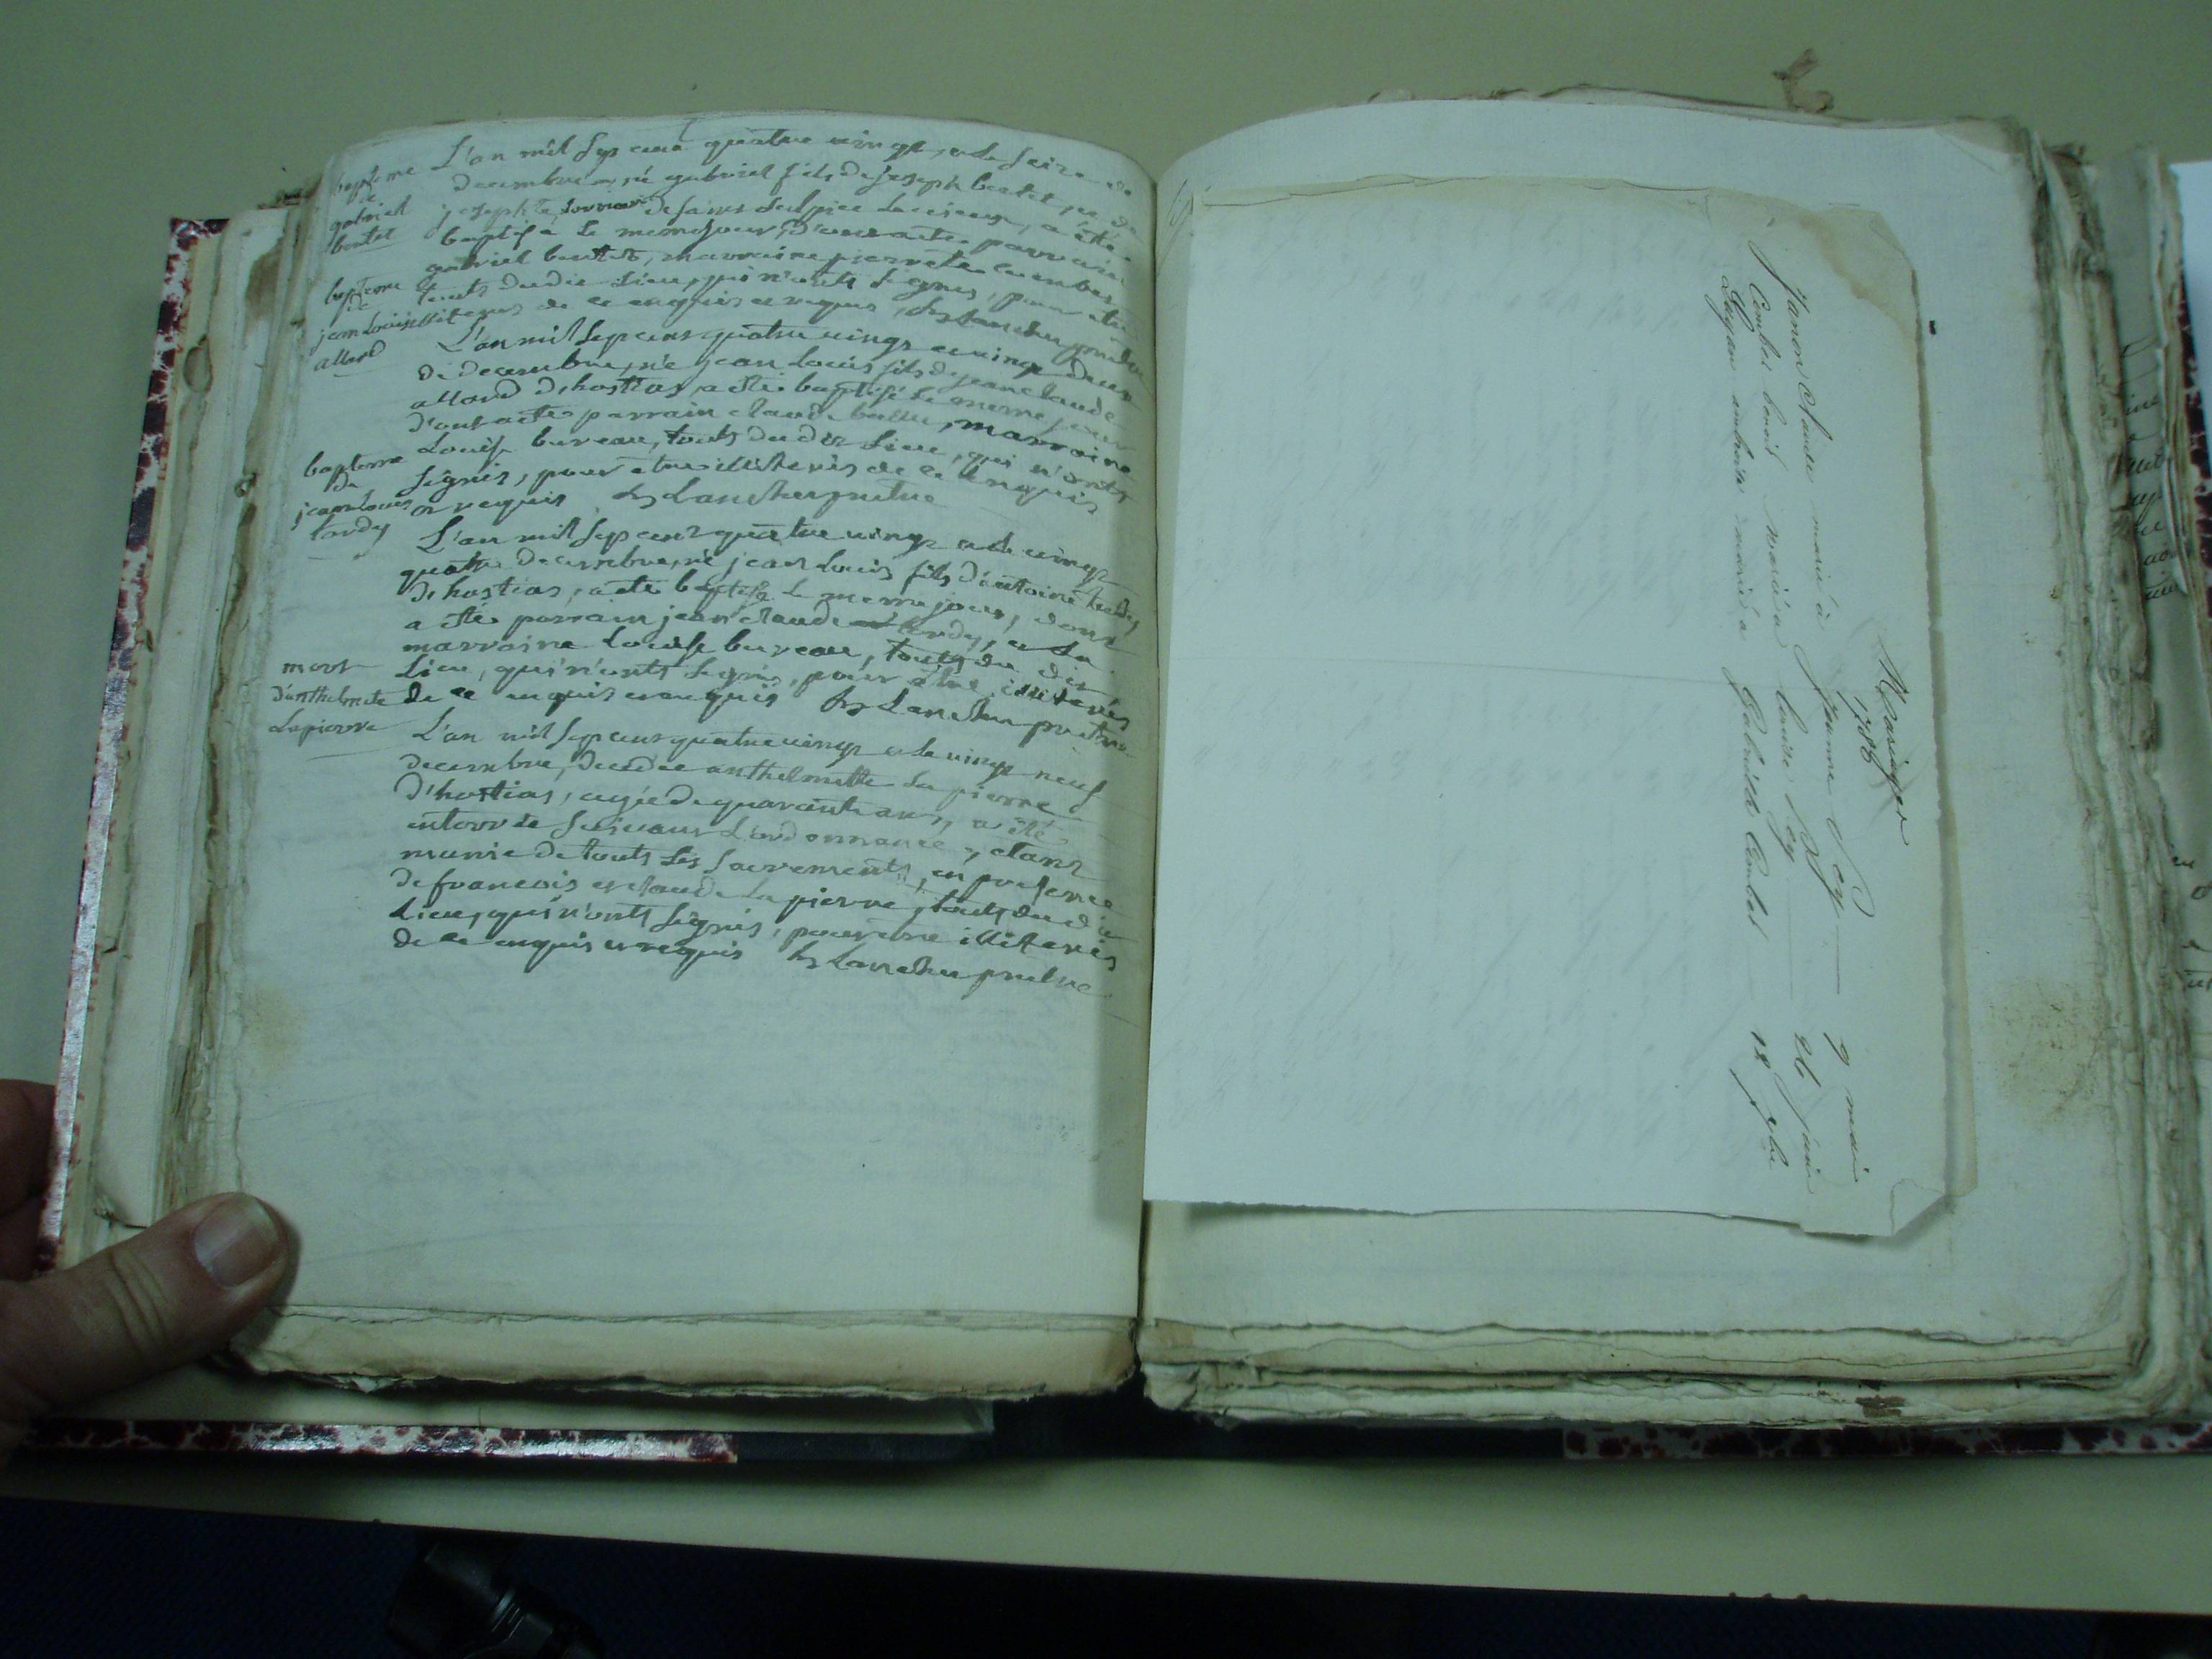 bapteme
de
gabriel
bertet
L'an mil sept cent quatre vingt, et le seize de
decembre, né gabriel fils de joseph bertet et de
josephte de saint Sulpice, a été
baptisé le meme jour, d'ont a été parrain
gabriel bertet, marraine pierrette
touts dudit Lieu, qui n'onts signés, pour etre
illiterés de ce enquis et requis, Lancher pretre
bapteme
de
jean Louis
allard
L'an mil sept cent quatre vingt et vingt deux
de decembre, né jean Louis fils de jean claude
allard d'hostias, a été baptisé le meme jour
d'ont a été parrain claude, marraine
Louise bureau, touts dudit Lieu, qui n'onts
signés, pour etre illiterés de ce enquis
et requis Lancher pretre
bapteme
de
jean Louis
tardy
L'an mil sept cent quatre vingt et le vingt
quatre decembre, né jean Louis fils d'antoine tardy
d'hostias, a été baptisé le meme jour, dont
a été parrain jean claude tardy, et la
marraine Louise bureau, touts du dit
Lieu, qui n'onts signés, pour etre illiterés
de ce enquis et requis Lancher pretre
mort
d'anthelmette
Lapierre
L'an mil sept cent quatre vingt et le vingt neuf
decembre, decedée anthelmette La pierre
d'hostias, agée de quarante ans, a été
enterrée suivant L'ordonnance, etant
munie de touts les sacrements, en presence
de francois et claude La pierre, touts dudit
Lieu, qui n'onts signés, pour etre illiterés
de ce enquis et requis Lancher pretre
Mariages
1788
Janon Claude marié à Jeanne Rey — 9 mai
Combet benoit marié à louise Rey — 26 juin
Lagan anthelme marié à Gabrielle Combet 18 7bre